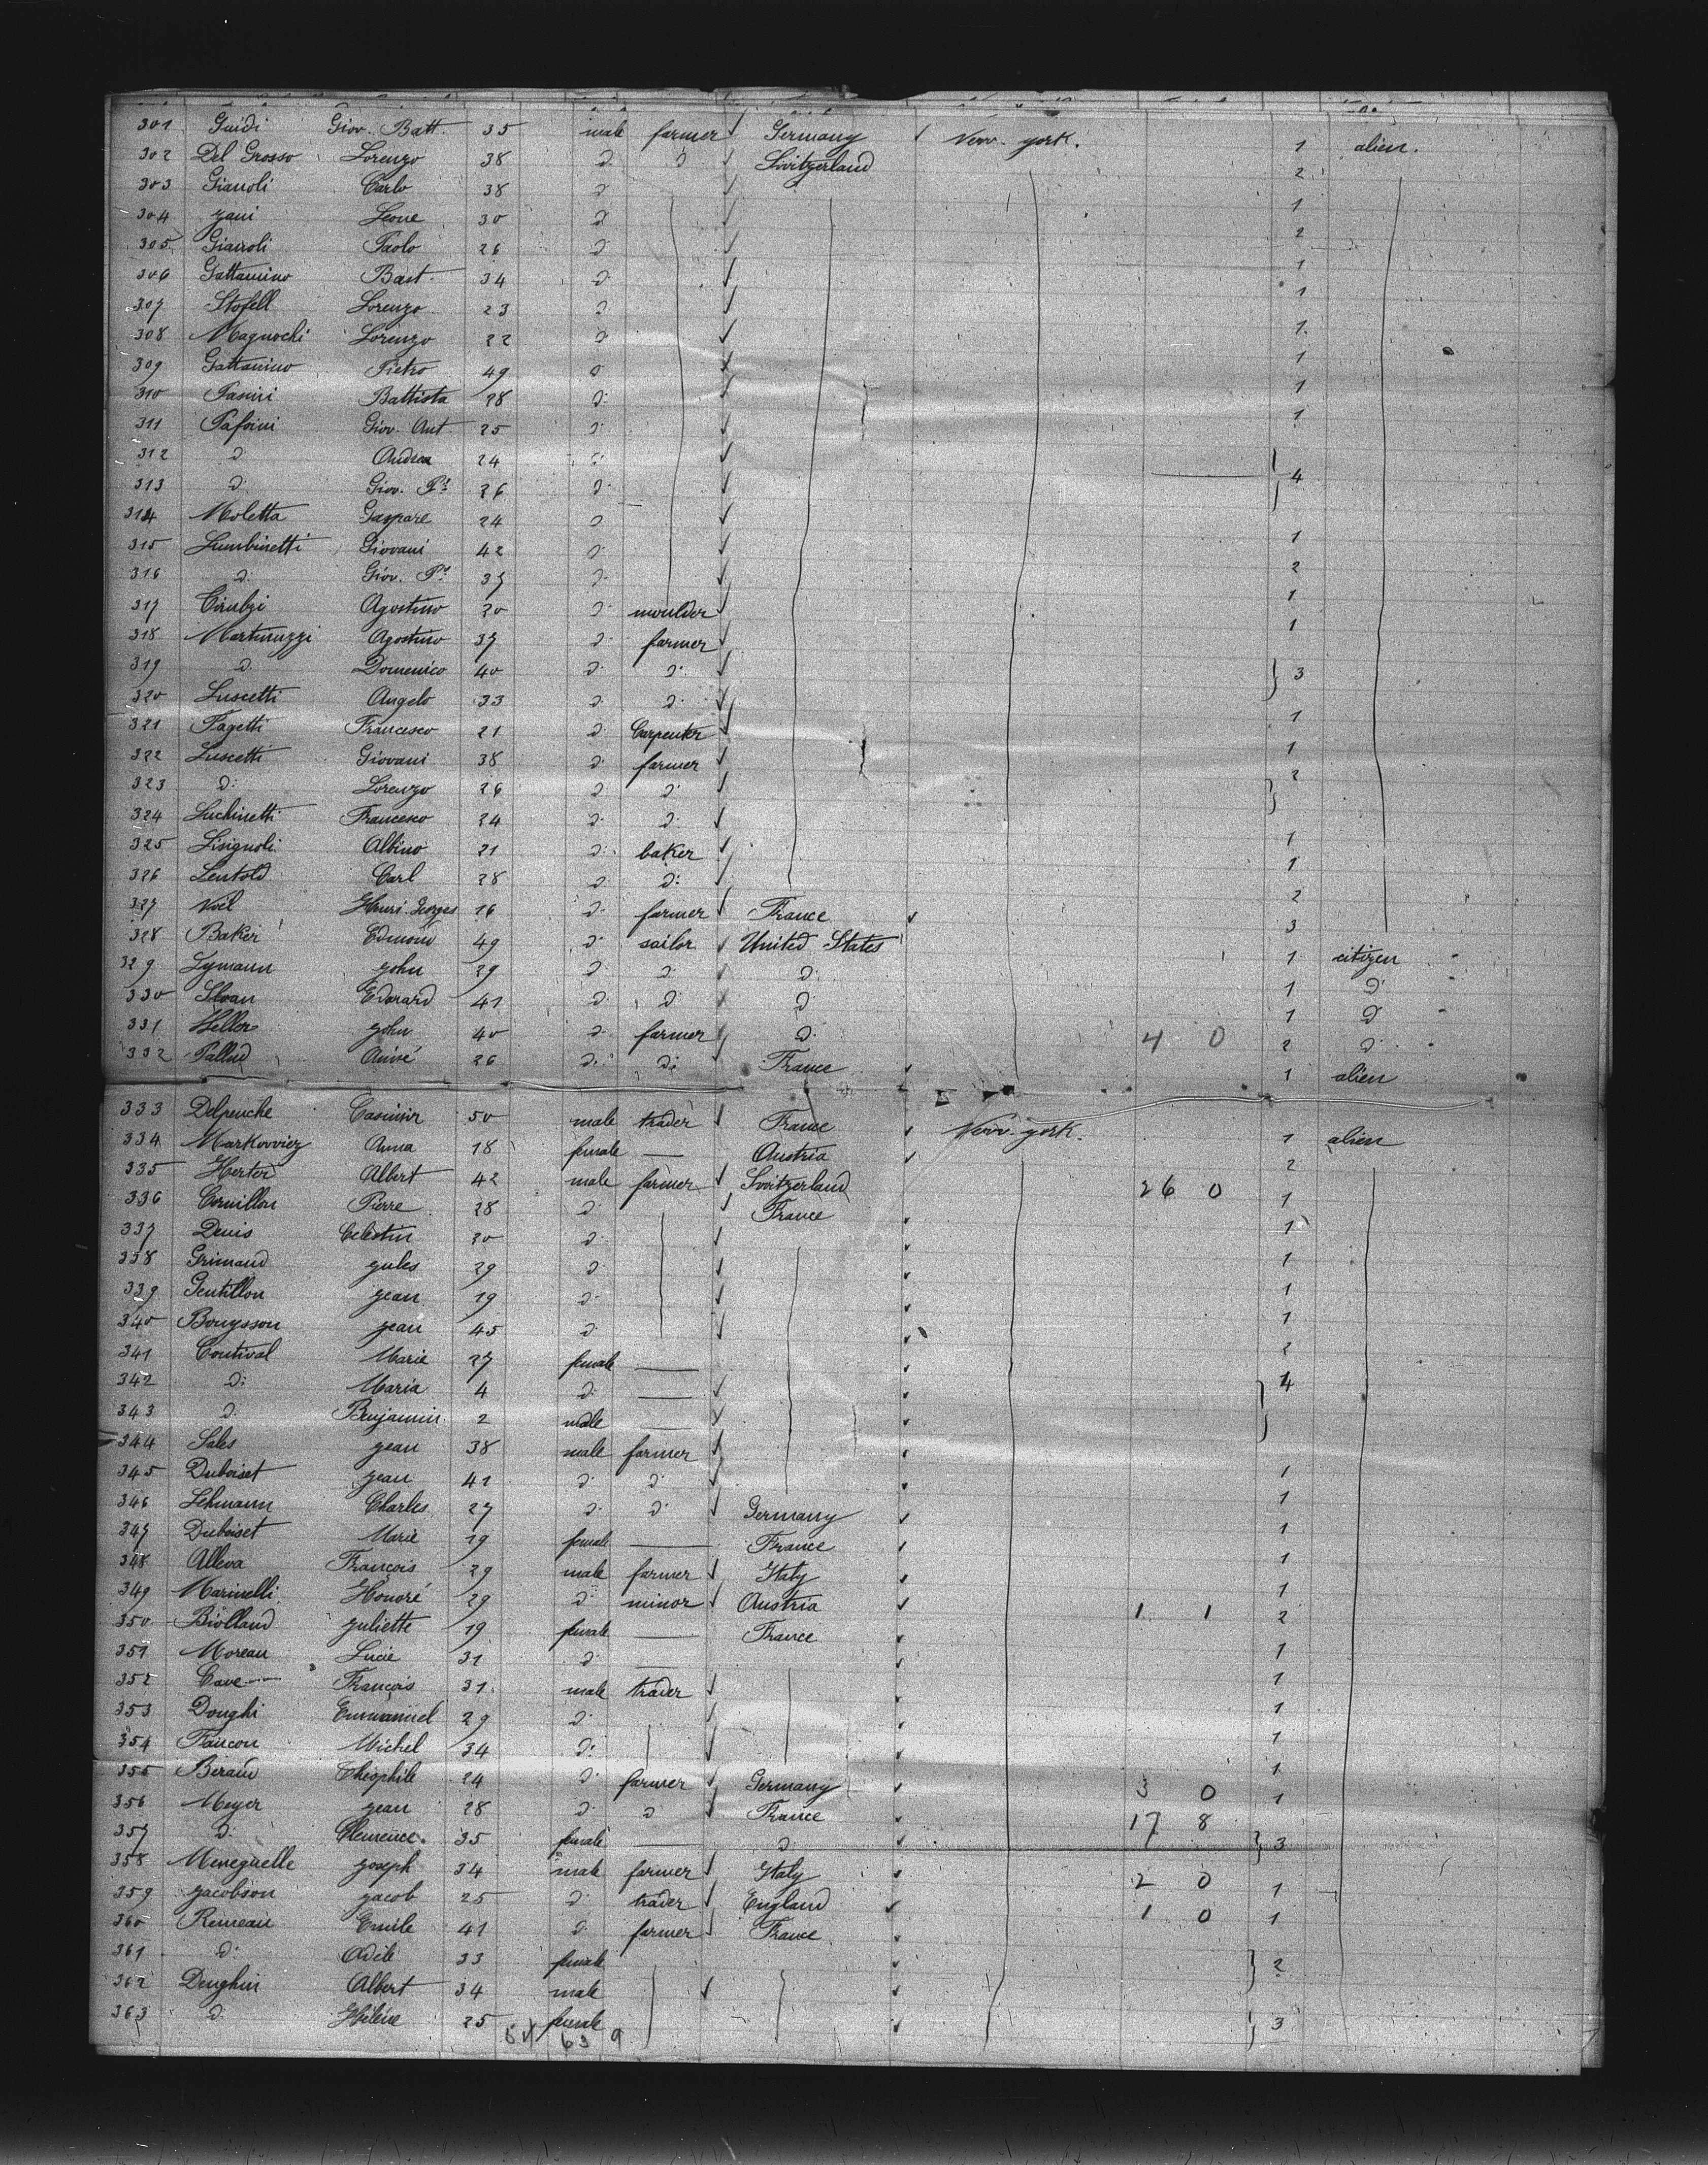 301 Guidi Giov. Batt. 35 male farmer Germany Nevv. york. 1 alien.
302 Del Grosso Lorenzo 38 d d Svvitzerland 2
303 Gianoli Carlo 38 d 1
304 yani Leone 30 d 2
305 Gianoli Paolo 26 d 1
306 Gattanino Bast 34 d 1
307 Stofell Lorenzo 23 d 1
308 Magnochi Lorenzo 22 d 1
309 Gattanino Pietro 49 d 1
310 Pasini Battista 28 d 1
311 Giov. Ant 25 d
312 d Andrea 24 d 4
313 d Giov. 26 d
314 Moletta Gaspare 24 d 1
315 Lumbinetti Giovani 42 d 2
316 d: Giov. 37 d 1
317 Agostino 20 d moulder 1
318 Martinuzzi Agostino 37 d farmer
319 d. Domenico 40 d. d. 3
320 Luscetti Angelo 33 d. d. 1
321 Pagetti Francesco 21 d Carpenter 1
322 Luscetti Giovani 38 d. farmer 2
323 d: Lorenzo 26 d d
324 Luchinetti Francesco 24 d. d. 1
325 Lisignoli Albino 21 d. baker 1
326 Leutold Carl 28 d d: 2
327 Noël Henri Georges 16 d. farmer France 3
328 Baker Edmond 49 d. sailor United States 1 citizen
329 Lymann john 29 d. d. d. 1 d.
330 Sloan Edward 41 d d. d 1 d
331 Hellor john 40 d. farmer d. 4 0 2 d.
332 Pallud Aimé 26 d. d: France 1 alien
333 Delpeuche Casimir 50 male trader France Nevv-york. 1 alien
334 Markovviez Anna 18 female — Austria 2
335 Herter Albert 42 male farmer Svvitzerland 26 0 1
336 Cornillon Pierre 28 d. France 1
337 Denis Celestin 20 d. 1
338 Grimaud jules 29 d 1
339 Gentillon jean 19 d. 1
340 Bouysson jean 45 d. 2
341 Coutival Marie 27 female — 4
342 d: Maria 4 d. —
343 d. Benjamin 2 male —
344 Sales jean 38 male farmer 1
345 Duboiset jean 41 d. d. 1
346 Lehmann Charles 27 d. d. Germany 1
347 Duboiset Marie 19 female — France 1
348 Alleva François 29 male farmer Italy 1
349 Marinelli Honoré 29 d. minor Austria 1 1 2
350 Biolland juliette 19 female — France 1
351 Moreau Lucie 31 d — 1
352 Cave François 31 male trader 1
353 Donghi Emmanuel 29 d. 1
354 Faucon Michel 34 d: 1
355 Beraud Théophile 24 d. farmer Germany 3 0 1
356 Meyer jean 28 d. d France 17 8
357 d. Clemence 35 female — d 3
358 Meneguelle joseph 34 male farmer Italy 2 0 1
359 jacobson jacob 25 d. trader England 1 0 1
360 Remeau Emile 41 d. farmer France
361 d: Adèle 33 female 2
362 Denghin Albert 34 male
363 d. Hélène 25 female 3
54 63 9